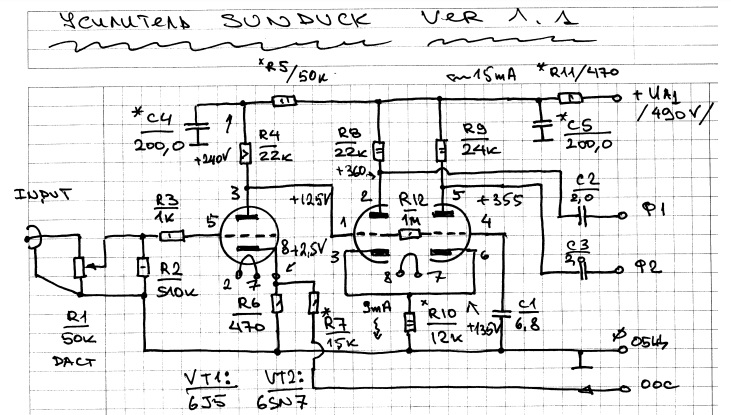 Усилитель SUNDUCK Ver 1.1
*R5/50к
~15mA
*R11/470
+UA1
/490V/
*C4
200,0
+240V
R4
22к
R8
22к
+360
R9
24к
*C5
200,0
INPUT
R3
1к
3
5
+125V
2
R12
1M
5
+355
C2
2,0
Ф1
1
4
3
6
8
+2,5V
2
7
8
7
C3
2,0
Ф2
R2
510к
R1
50к
DACT
R6
470
*R7
15к
9mA
*R10
12к
+135V
C1
6,8
Общ
ООС
VT1:
6J5
VT2:
6SN7